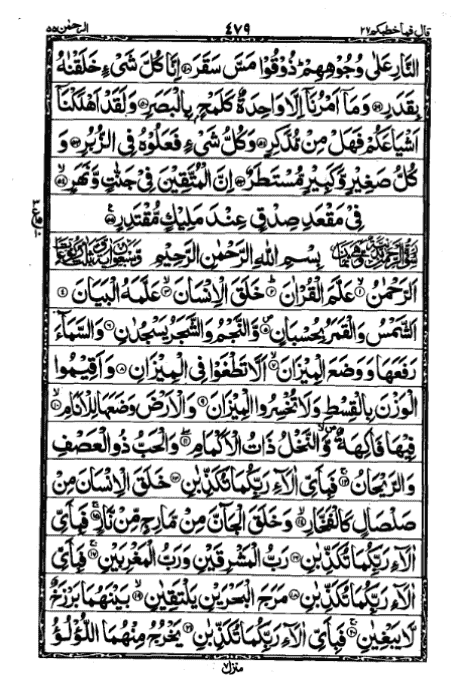 قال فما خطبكم ٢٧ ٤٧٩ الرحمٰن ٥٥
النَّارِ عَلٰى وُجُوْهِهِمْ ؕ ذُوْقُوْا مَسَّ سَقَرَ ﴿۴۸﴾ اِنَّا كُلَّ شَیْءٍ خَلَقْنٰهُ
بِقَدَرٍ ﴿۴۹﴾ وَمَاۤ اَمْرُنَاۤ اِلَّا وَاحِدَةٌ كَلَمْحٍۭ بِالْبَصَرِ ﴿۵۰﴾ وَلَقَدْ اَهْلَكْنَاۤ
اَشْیَاعَكُمْ فَهَلْ مِنْ مُّدَّكِرٍ ﴿۵۱﴾ وَكُلُّ شَیْءٍ فَعَلُوْهُ فِی الزُّبُرِ ﴿۵۲﴾ وَ
كُلُّ صَغِیْرٍ وَّكَبِیْرٍ مُّسْتَطَرٌ ﴿۵۳﴾ اِنَّ الْمُتَّقِیْنَ فِیْ جَنّٰتٍ وَّنَهَرٍ ﴿۵۴﴾
فِیْ مَقْعَدِ صِدْقٍ عِنْدَ مَلِیْكٍ مُّقْتَدِرٍ ﴿۵۵﴾
بِسْمِ اللهِ الرَّحْمٰنِ الرَّحِیْمِ
اَلرَّحْمٰنُ ﴿۱﴾ عَلَّمَ الْقُرْاٰنَ ﴿۲﴾ خَلَقَ الْاِنْسَانَ ﴿۳﴾ عَلَّمَهُ الْبَیَانَ ﴿۴﴾
اَلشَّمْسُ وَالْقَمَرُ بِحُسْبَانٍ ﴿۵﴾ وَّالنَّجْمُ وَالشَّجَرُ یَسْجُدٰنِ ﴿۶﴾ وَالسَّمَآءَ
رَفَعَهَا وَوَضَعَ الْمِیْزَانَ ﴿۷﴾ اَلَّا تَطْغَوْا فِی الْمِیْزَانِ ﴿۸﴾ وَاَقِیْمُوا
الْوَزْنَ بِالْقِسْطِ وَلَا تُخْسِرُوا الْمِیْزَانَ ﴿۹﴾ وَالْاَرْضَ وَضَعَهَا لِلْاَنَامِ ﴿۱۰﴾
فِیْهَا فَاكِهَةٌ وَّالنَّخْلُ ذَاتُ الْاَكْمَامِ ﴿۱۱﴾ وَالْحَبُّ ذُو الْعَصْفِ
وَالرَّیْحَانُ ﴿۱۲﴾ فَبِاَیِّ اٰلَآءِ رَبِّكُمَا تُكَذِّبٰنِ ﴿۱۳﴾ خَلَقَ الْاِنْسَانَ مِنْ
صَلْصَالٍ كَالْفَخَّارِ ﴿۱۴﴾ وَخَلَقَ الْجَآنَّ مِنْ مَّارِجٍ مِّنْ نَّارٍ ﴿۱۵﴾ فَبِاَیِّ
اٰلَآءِ رَبِّكُمَا تُكَذِّبٰنِ ﴿۱۶﴾ رَبُّ الْمَشْرِقَیْنِ وَرَبُّ الْمَغْرِبَیْنِ ﴿۱۷﴾ فَبِاَیِّ
اٰلَآءِ رَبِّكُمَا تُكَذِّبٰنِ ﴿۱۸﴾ مَرَجَ الْبَحْرَیْنِ یَلْتَقِیٰنِ ﴿۱۹﴾ بَیْنَهُمَا بَرْزَخٌ
لَّا یَبْغِیٰنِ ﴿۲۰﴾ فَبِاَیِّ اٰلَآءِ رَبِّكُمَا تُكَذِّبٰنِ ﴿۲۱﴾ یَخْرُجُ مِنْهُمَا اللُّؤْلُؤُ
منزل ٧